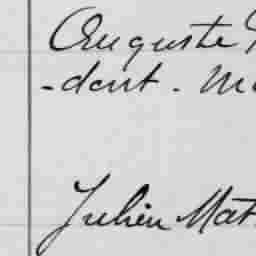 Auguste
-dent. Ma
Julien Mat